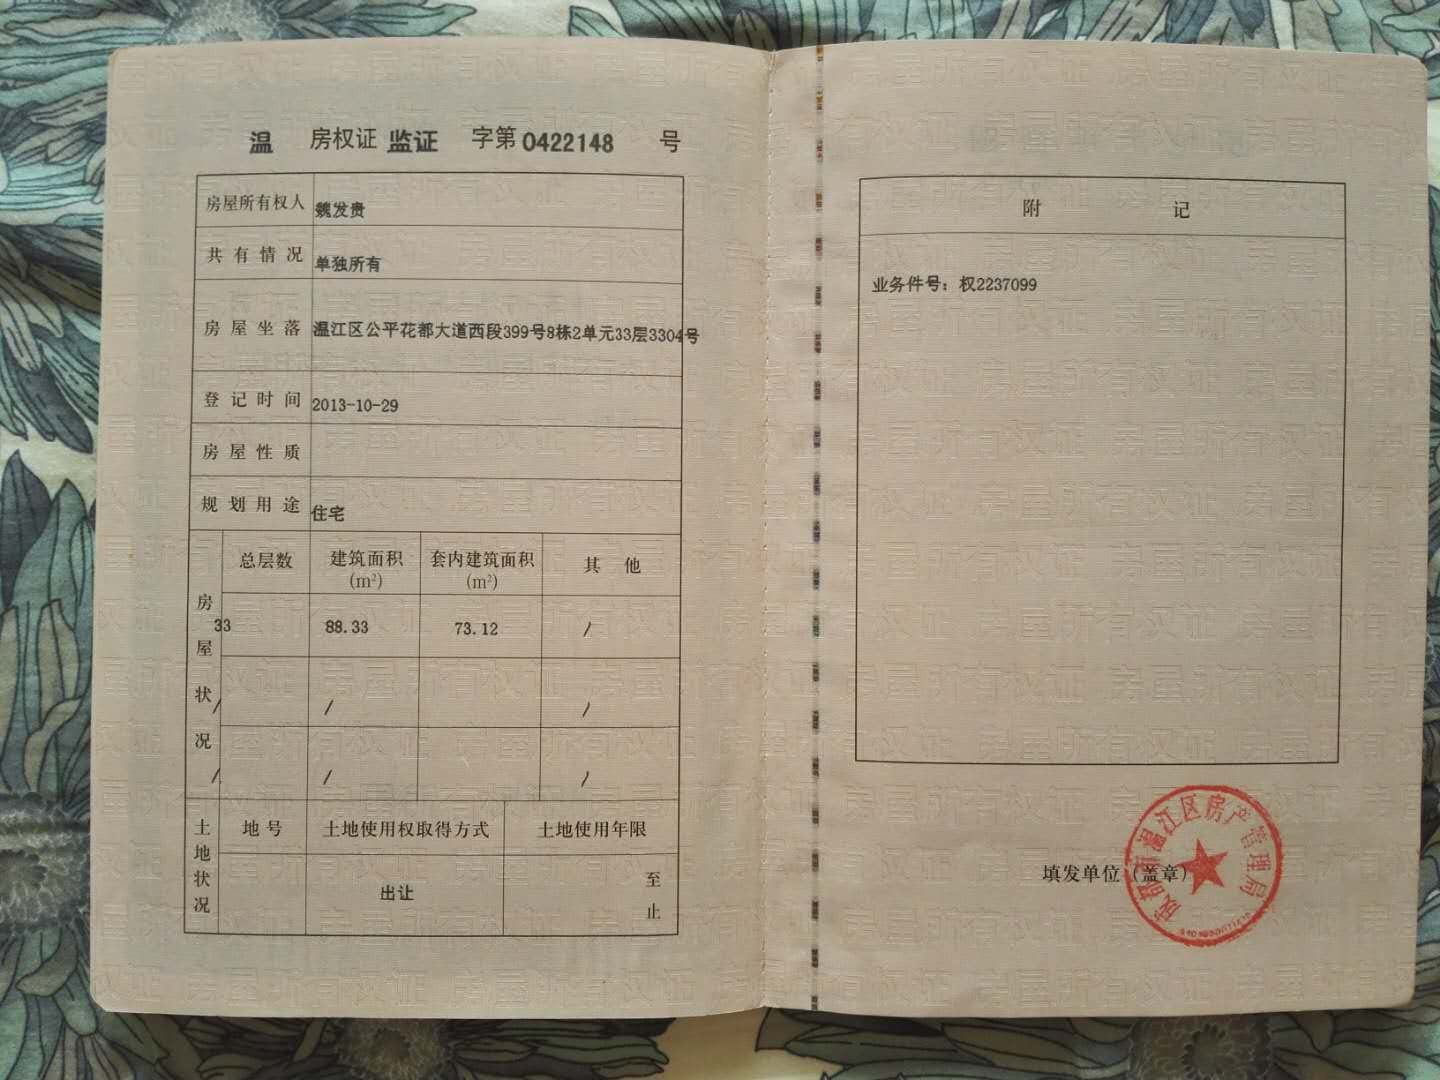 温 房权证 监证 字第 0422148 号
房屋所有权人 魏发贵
共有情况 单独所有
房屋坐落 温江区公平花都大道西段399号8栋2单元33层3304号
登记时间 2013-10-29
房屋性质
规划用途 住宅
房屋状况
总层数 建筑面积(m²) 套内建筑面积(m²) 其他
33 88.33 73.12 /
/ / /
/ / /
土地状况
地号 土地使用权取得方式 土地使用年限
出让 至
止
附记
业务件号：权2237099
填发单位（盖章）
成都市温江区房产管理局